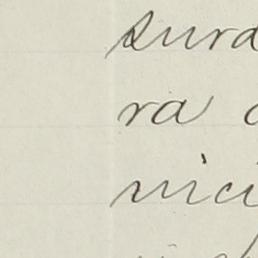 surd
ra
nici